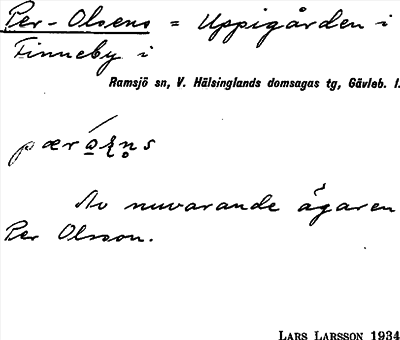 Per-Olsens = Uppigården i
Finneby i
Ramsjö sn, V. Hälsinglands domsagas tg, Gävleb. l.
Av nuvarande ägaren
Per Olsson.
LARS LARSSON 1934